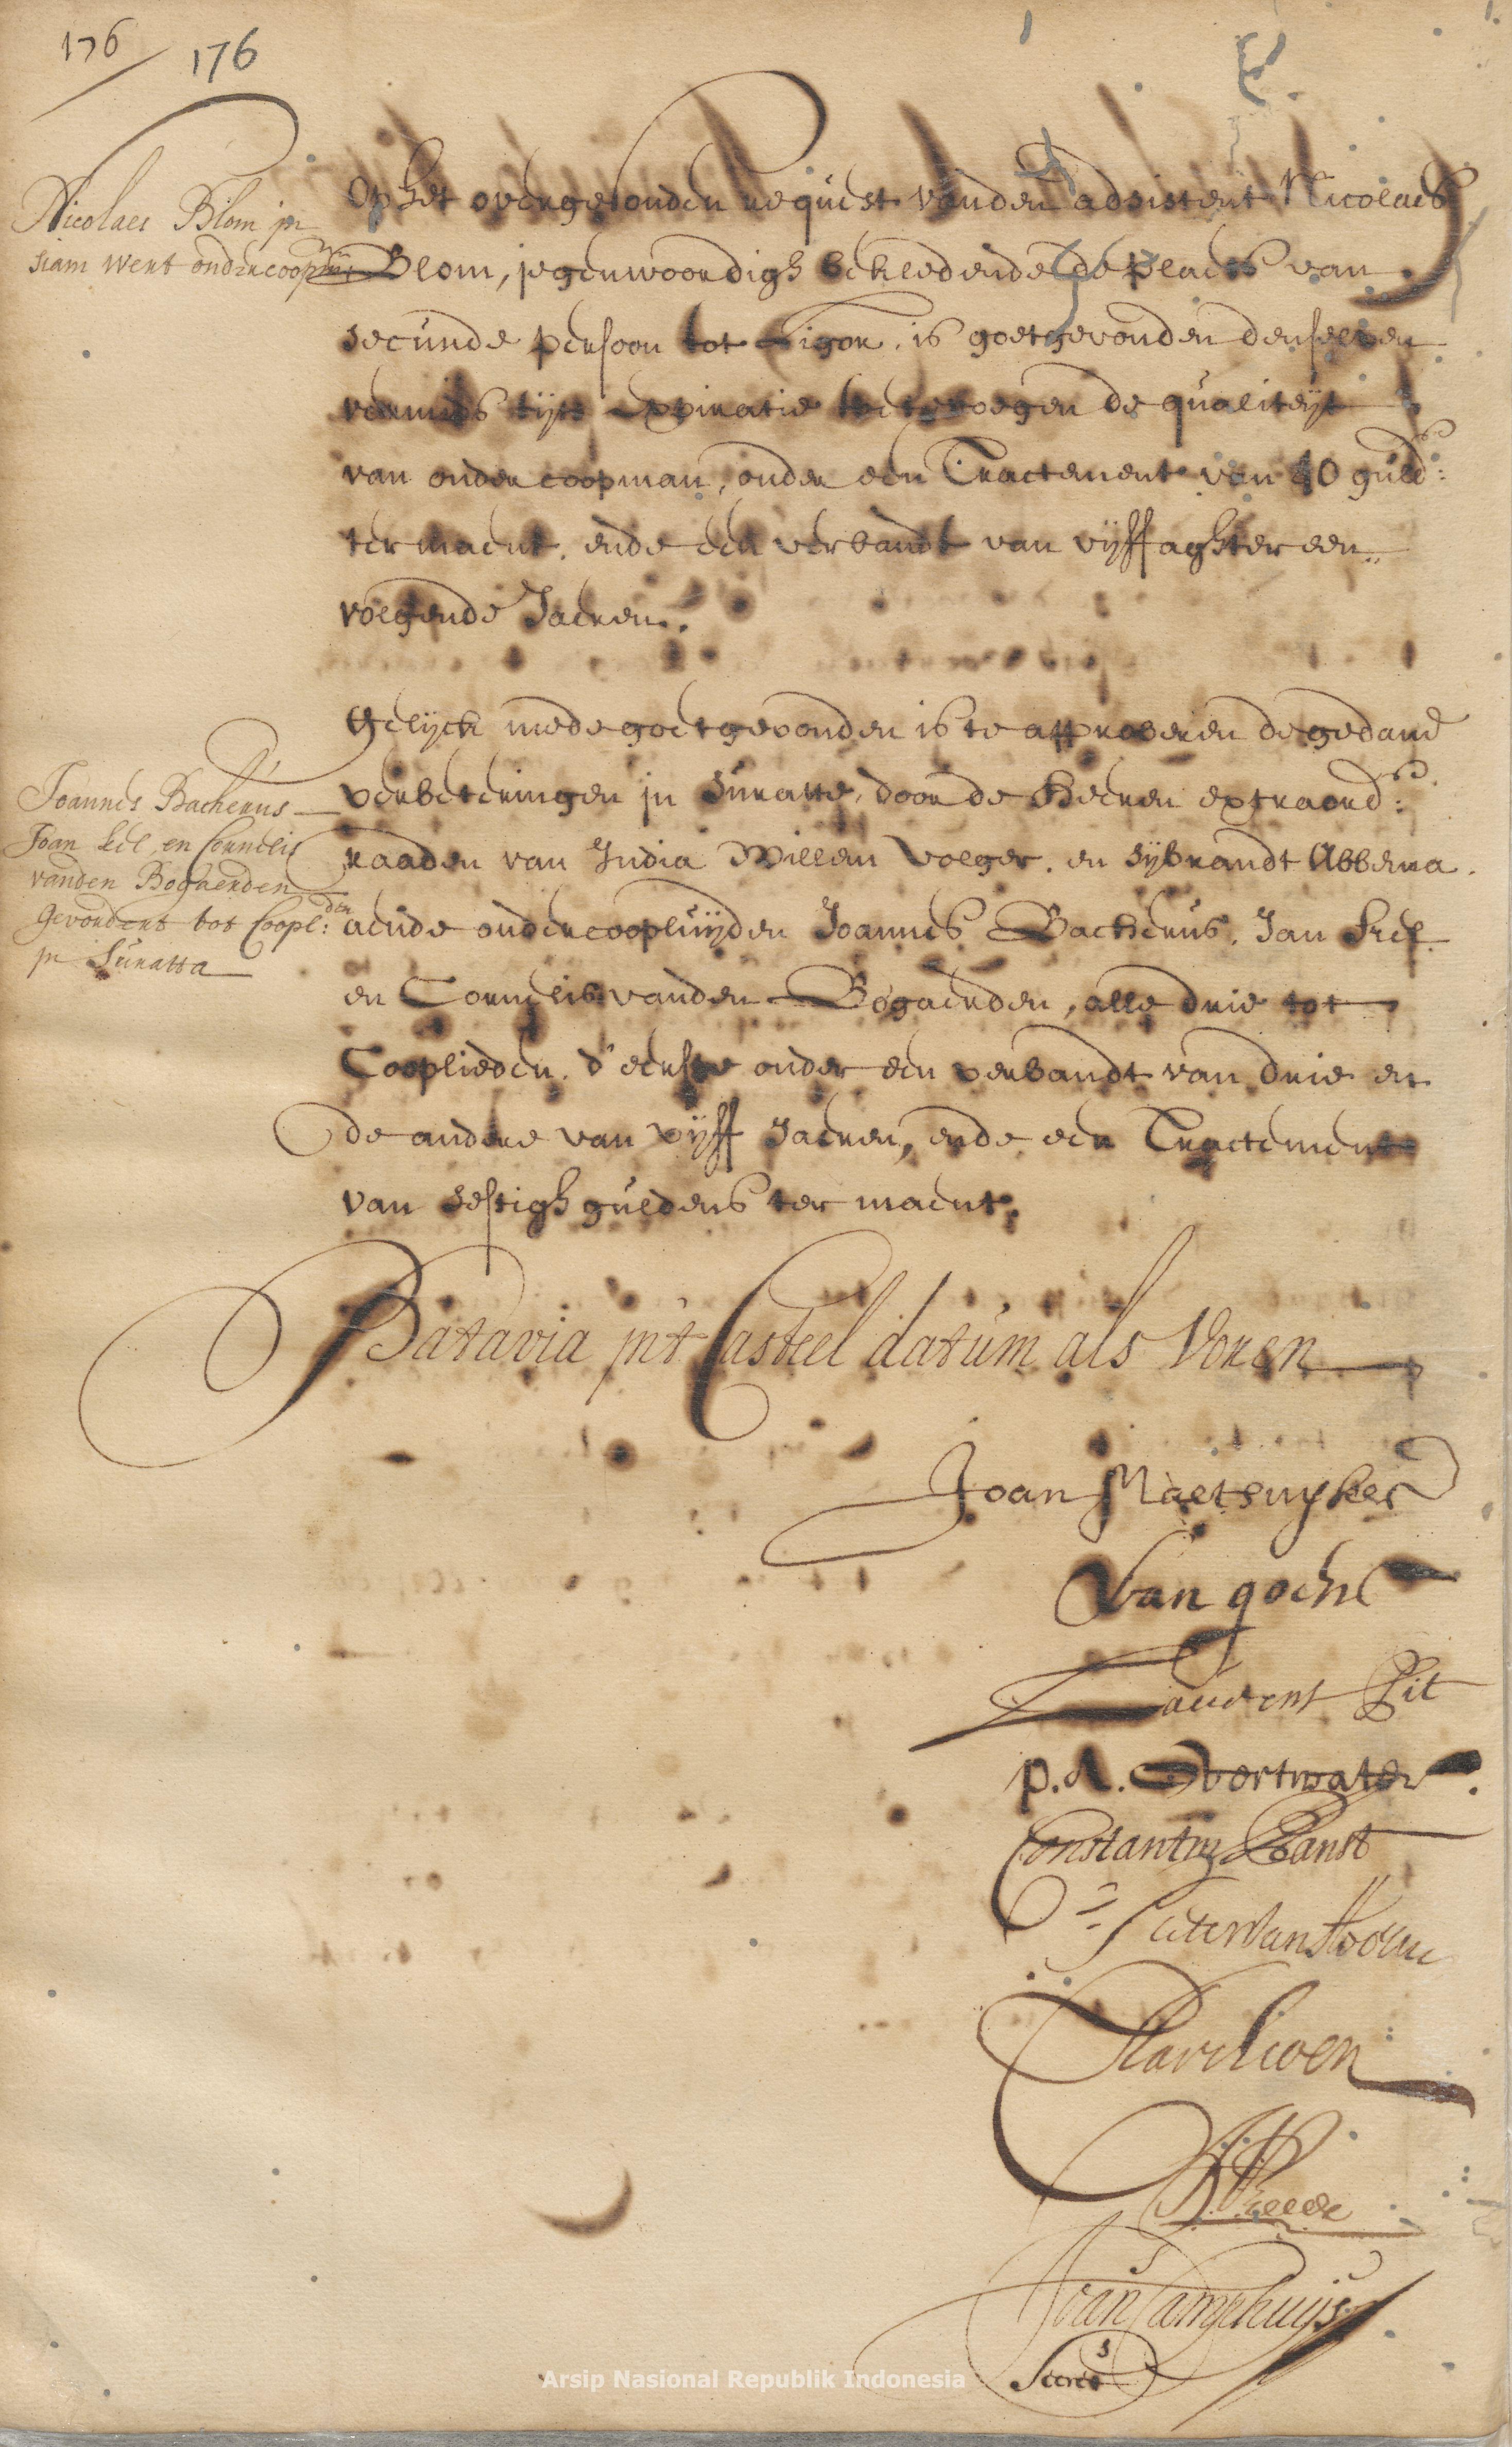 176 176
Nicolaes Blom jn
siam wert ondercoopm:
Op het overgesonden request vanden adsistent Nicolaes
Blom, jegenwoordigh bekledende de plaets van
secunde persoon tot Ligor, is goetgevonden denselven
vermits tijts expiratie toe te voegen de qualiteijt
van ondercoopman, onder een Tractement van 40 guld:
ter maent, ende een verbandt van vijff aghter een„
volgende Jaeren.
Gelijck mede goetgevonden is te approberen de gedane
Joannes Bacherus
Joan kel en Cornelis
vanden Bogaerden
gevordert tot Coopl:den
jn Suratta
verbeteringen jn Suratte, door de Heeren extraord:
raaden van India Willem Volger, en Sijbrandt Abbema
aende ondercoopluijden Joannes Bacherus, Jan
en Cornelis vanden Bogaerden, alle drie tot
Cooplieden, d'eerste onder een verbandt van drie en
de andere van vijff Jaeren, ende een Tractement
van sestigh guldens ter maent.
Batavia jn't Casteel datum als Voren
Joan Maetsuyker
Van goens
Laurens Pit
p. A. Overtwater
Constantin Ranst
Pieter Van Hoorn
Joan Camphuijs
Secrets
Arsip Nasional Republik Indonesia